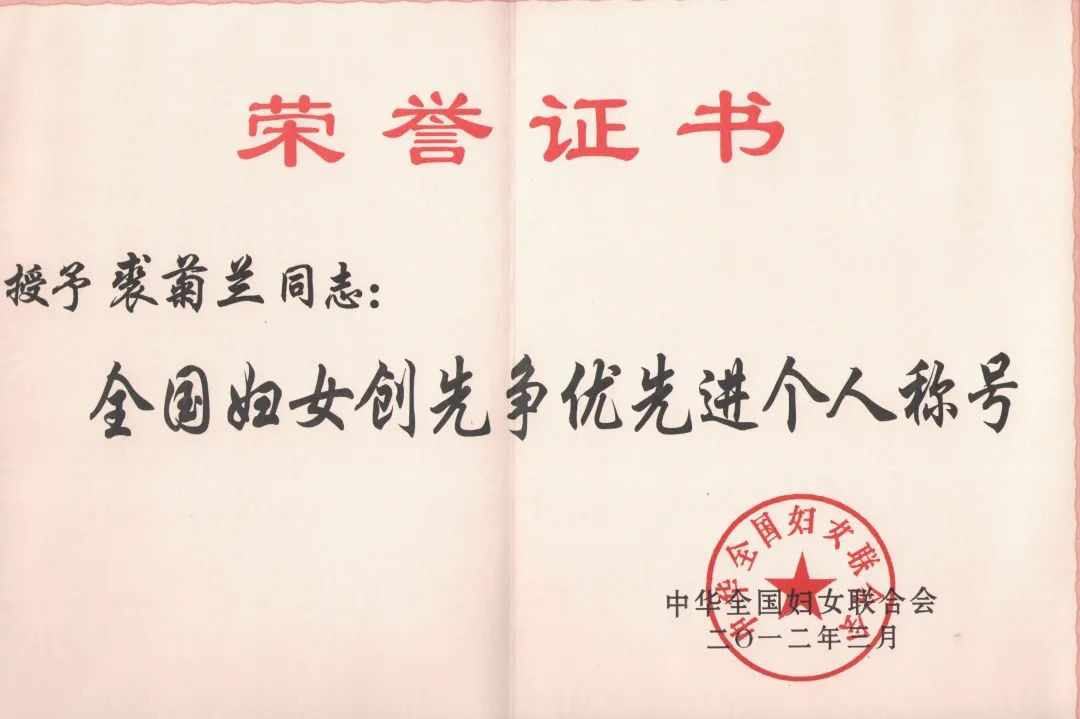 荣誉证书
授予裘菊兰同志：
全国妇女创先争优先进个人称号
中华全国妇女联合会
中华全国妇女联合会
二〇一二年三月